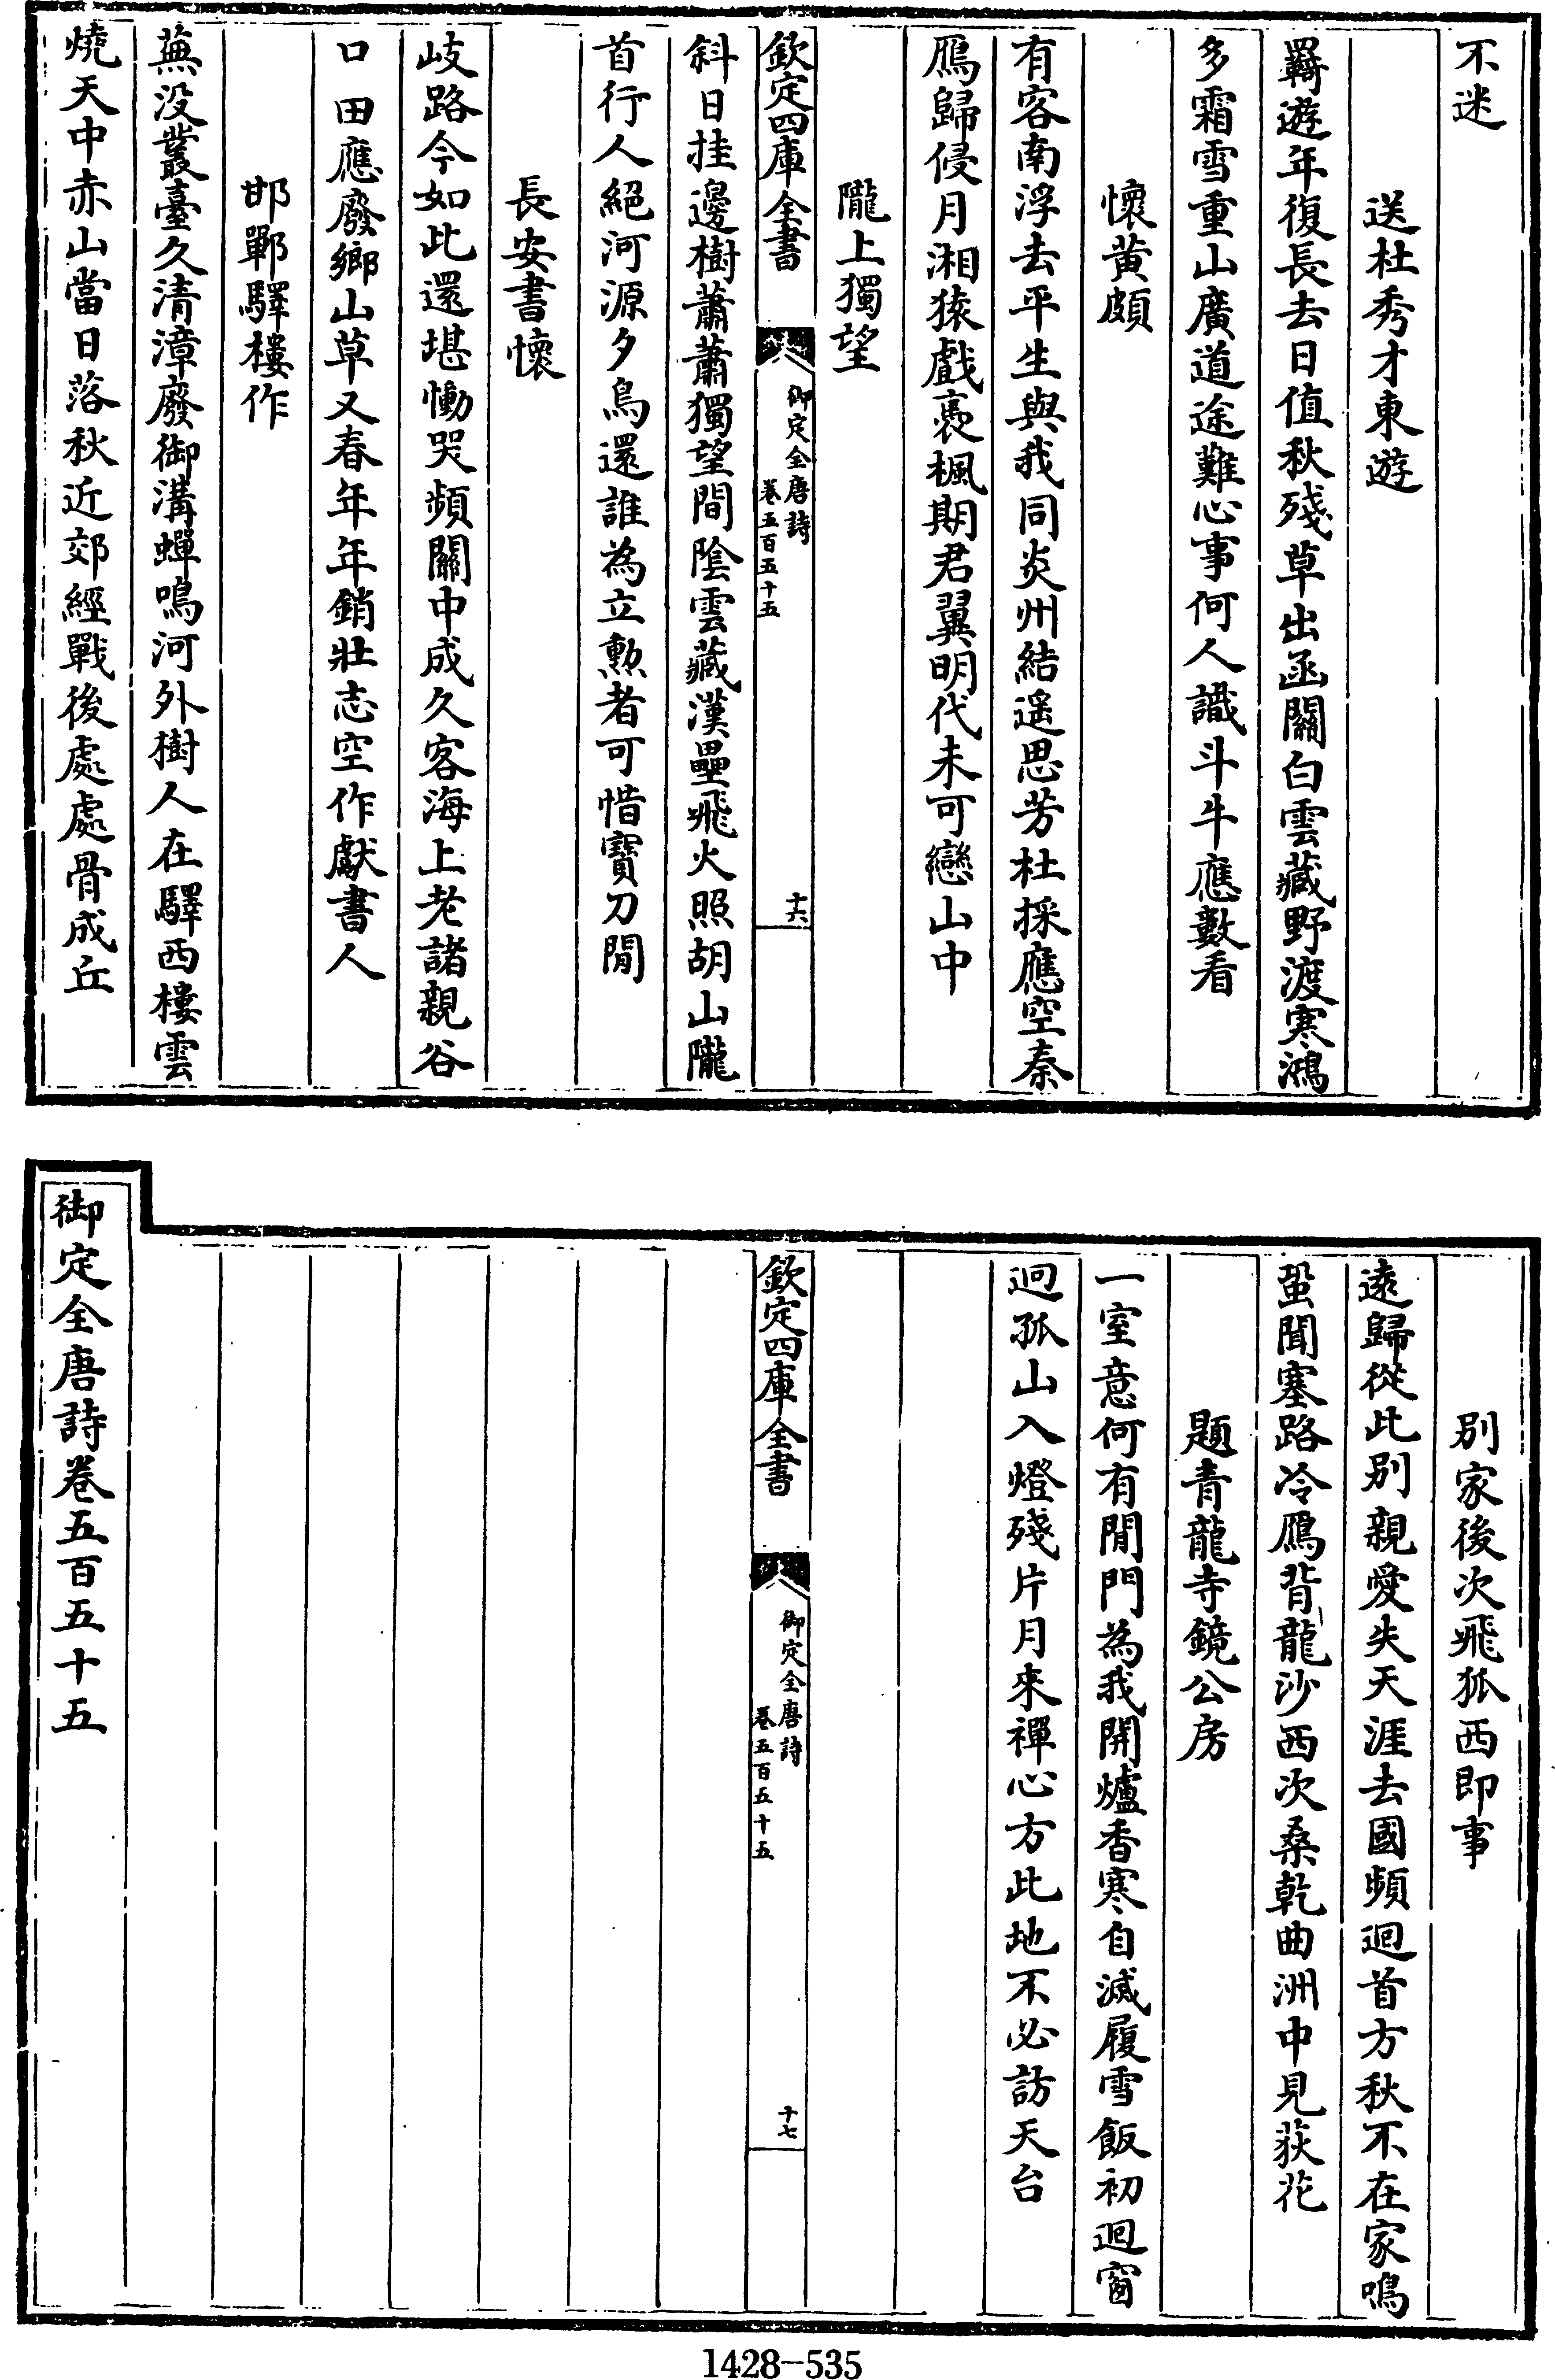 不迷
送杜秀才東遊
羇遊年復長去日值秋殘草出函關白雲藏野渡寒鴻
多霜雪重山廣道途難心事何人識斗牛應數看
懷黄頗
有客南浮去平生與我同炎州結遥思芳杜採應空秦
鴈歸侵月湘猿戲褭楓期君翼明代未可戀山中
隴上獨望
欽定四庫全書
御定全唐詩
卷五百五十五
十六
斜日挂邊樹蕭蕭獨望間陰雲藏漢壘飛火照胡山隴
首行人絕河源夕鳥還誰為立勲者可惜寶刀閒
長安書懷
岐路今如此還堪慟哭頻關中成久客海上老諸親谷
口田應廢鄉山草又春年年銷壯志空作獻書人
邯鄲驛樓作
蕪没叢臺久清漳廢御溝蟬鳴河外樹人在驛西樓雲
燒天中赤山當日落秋近郊經戰後處處骨成丘
别家後次飛狐西即事
遠歸從此别親愛失天涯去國頻迴首方秋不在家鳴
蛩聞塞路冷鴈背龍沙西次桑乾曲洲中見荻花
題青龍寺鏡公房
一室意何有閒門為我開爐香寒自滅履雪飯初迴窗
迥孤山入燈殘片月來禪心方此地不必訪天台
欽定四庫全書
御定全唐詩
卷五百五十五
十七
御定全唐詩卷五百五十五
1428-535